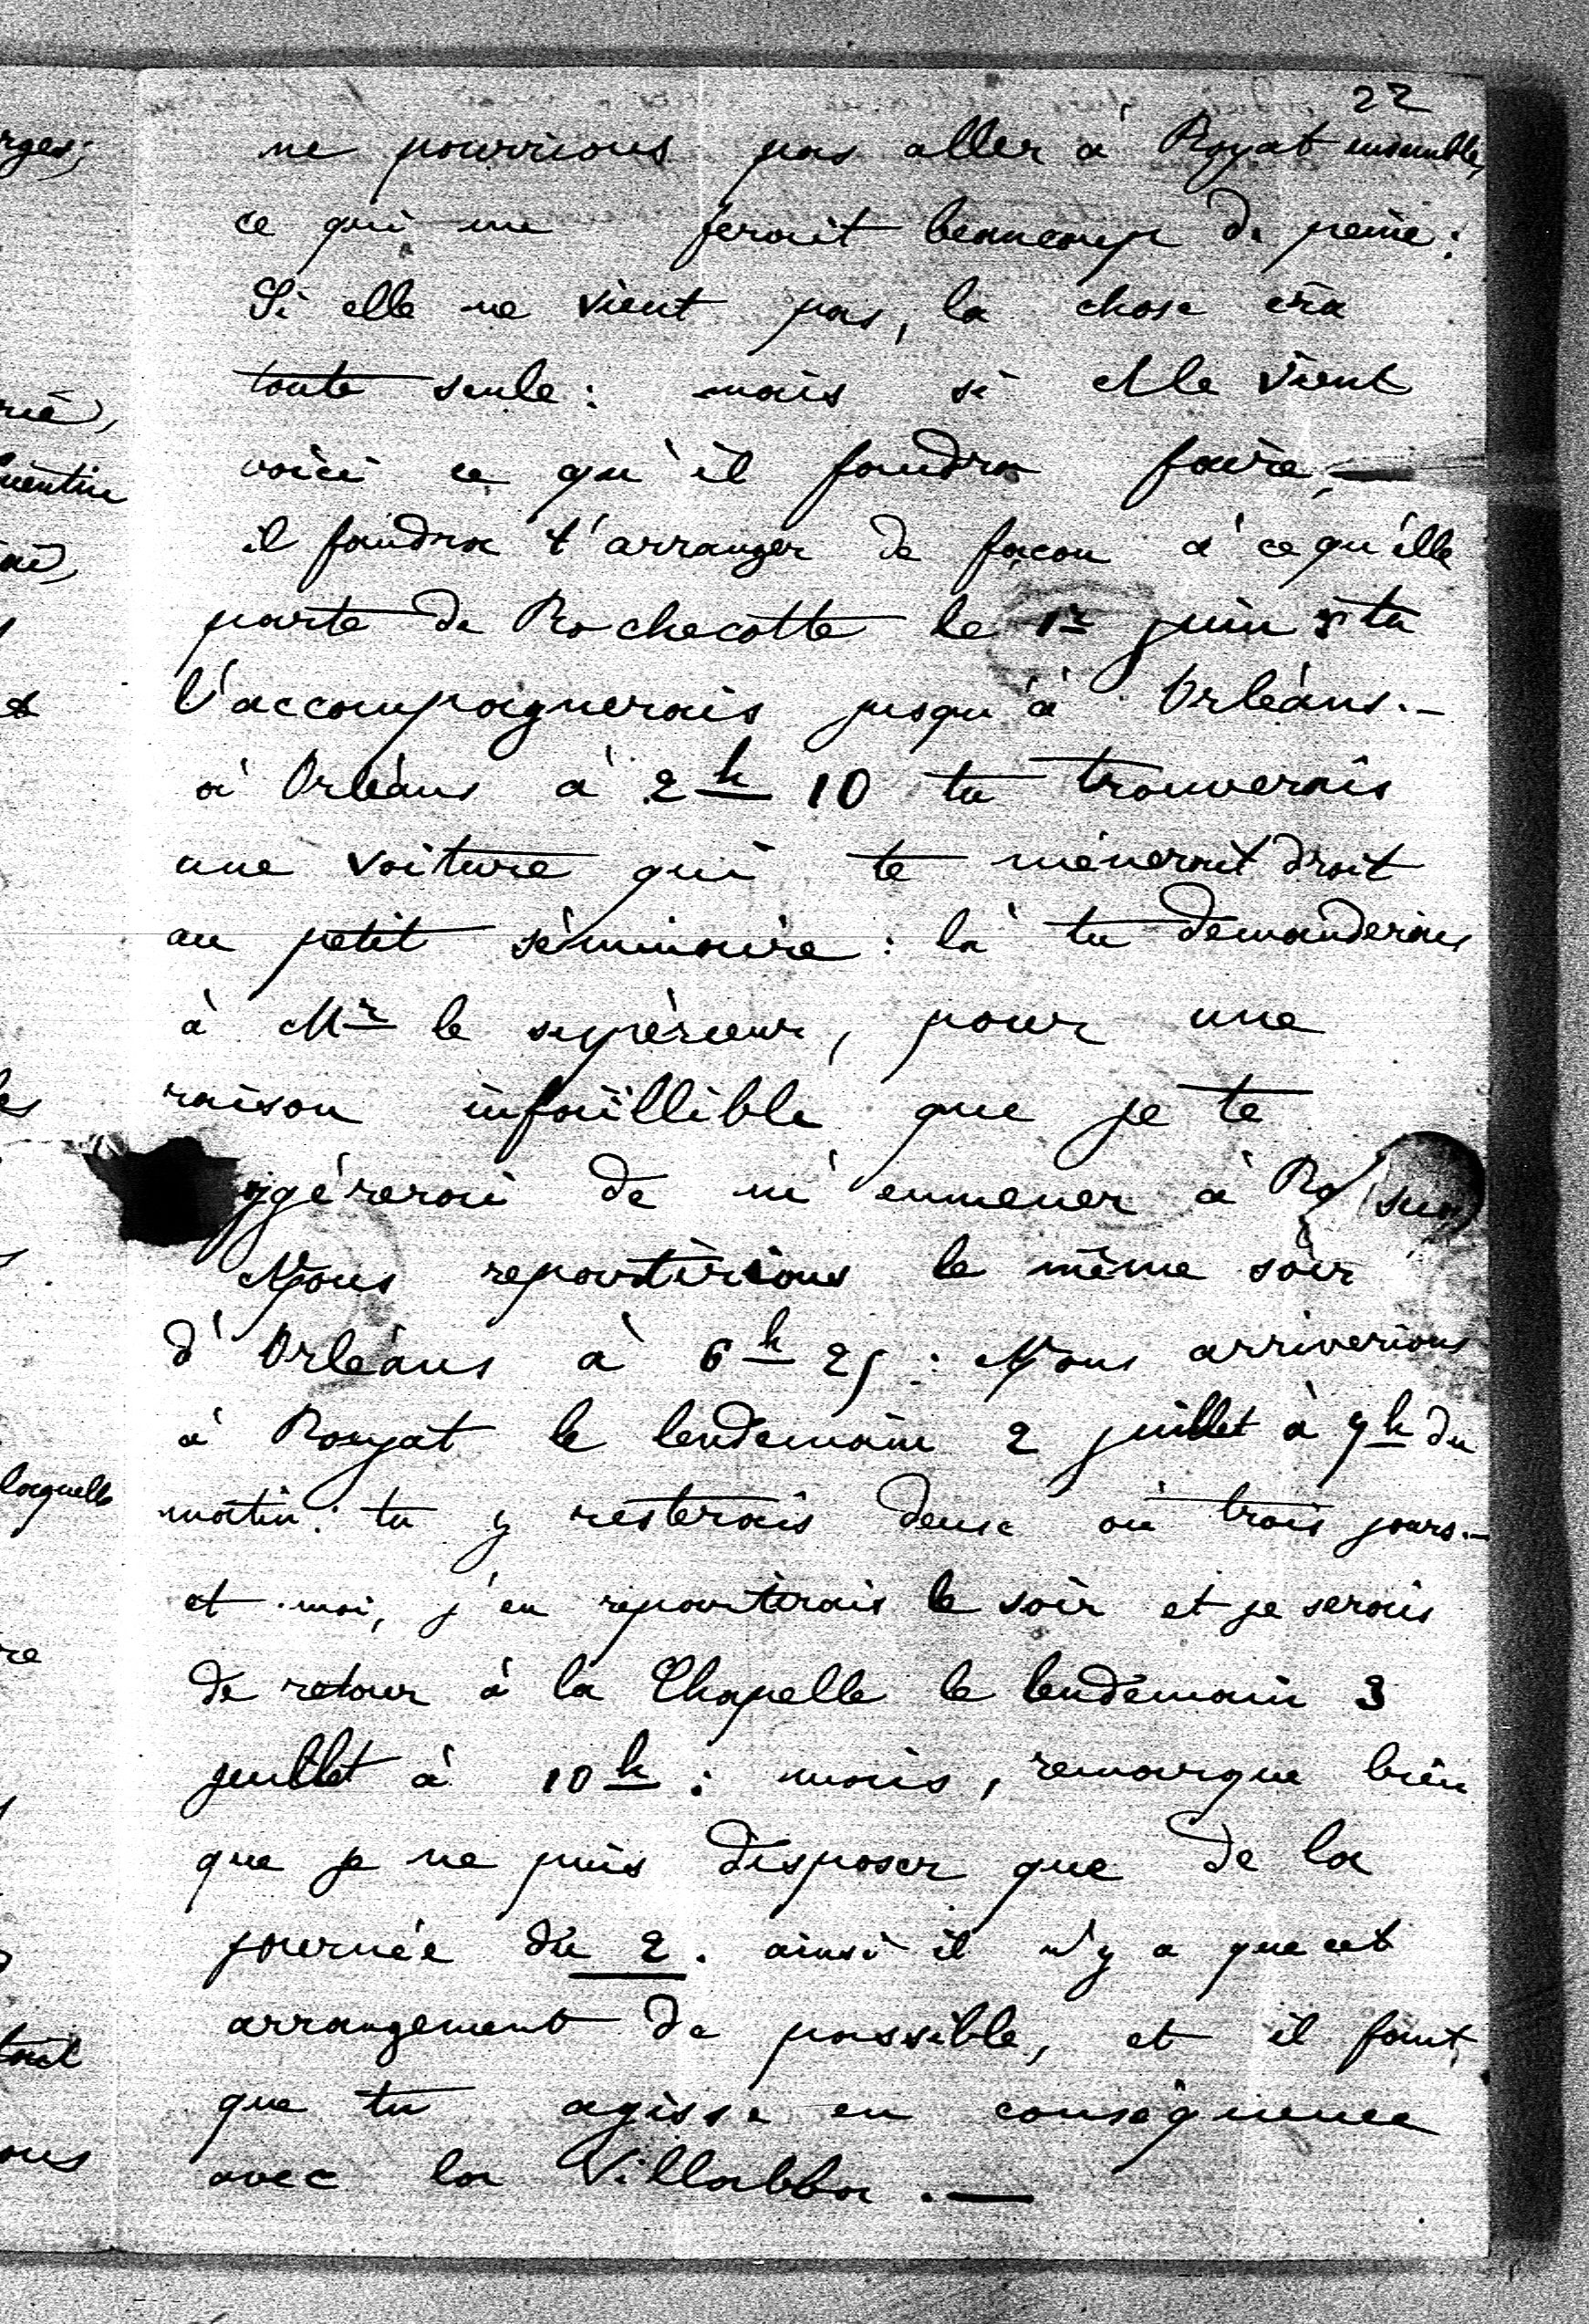 22
ne pourrions pas aller à Royat ensemble,
ce qui me ferait beaucoup de peine :
Si elle ne vient pas, la chose ira
toute seule : mais si elle vient
voici ce qu'il faudra faire, —
il faudra t'arranger de façon à ce qu'elle
parte de Rochecotte le 1r juin tu
l'accompagnerais jusqu'à Orléans. —
à Orléans à 2h 10 tu trouverais
une voiture qui te mènerait droit
au petit séminaire : là tu demanderais
à Mr le supérieur, pour une
raison infaillible que je te
ggérerai de m'emmener à Ro
Nous repartirions le même soir
d'Orléans à 6h 25 : Nous arriverions
à Royat le lendemain 2 juillet à 9h du
matin : tu y resterais deux ou trois jours. —
et moi, j'en repartirais le soir et je serais
de retour à la Chapelle le lendemain 3
juillet à 10h : mais, remarque bien
que je ne puis disposer que de la
journée du 2. ainsi il n'y a que cet
arrangement de possible, et il faut,
que tu agisse en conséquence
avec la Villabba. —